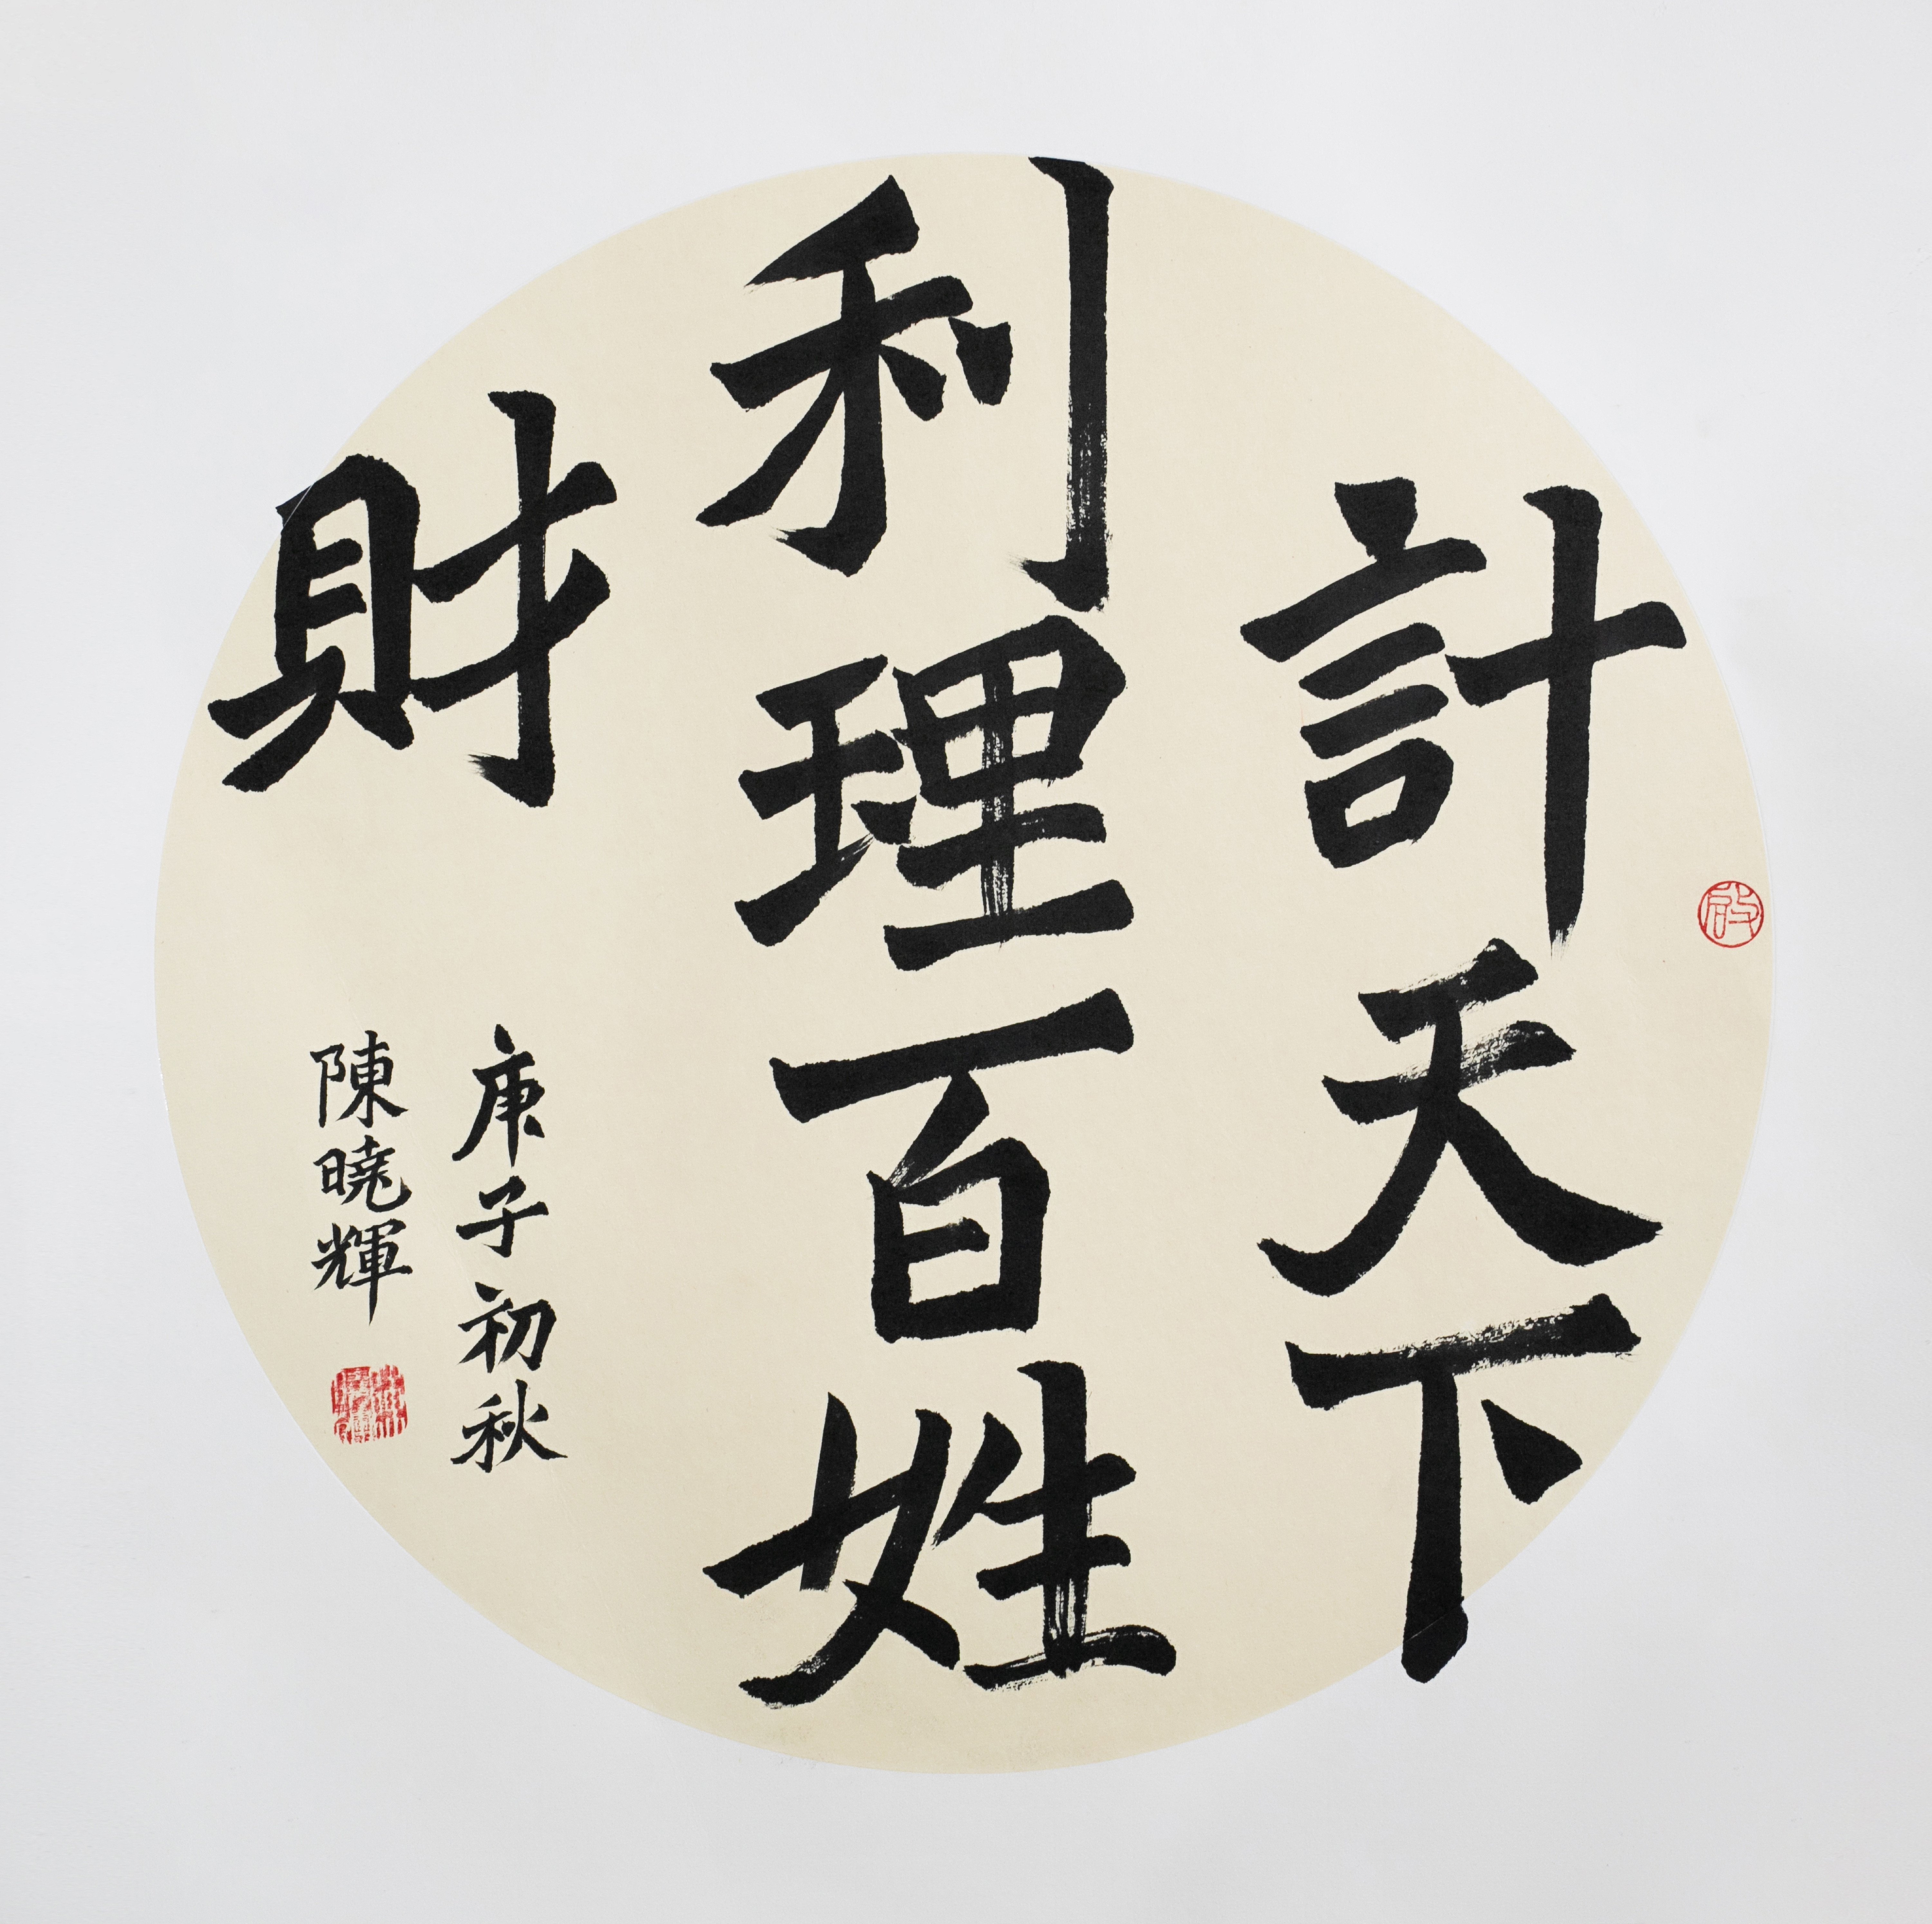 計天下
利理百姓
財
庚子初秋
陳曉輝